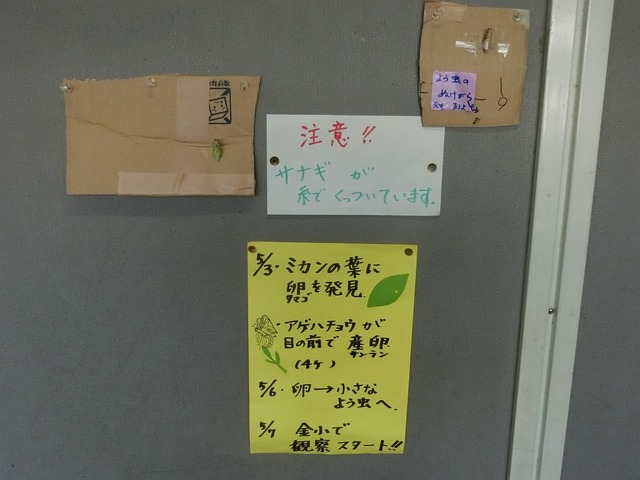 よう虫の
ぬけがら
注意!!
サナギが
糸でくっついています。
5/3・ミカンの葉に
卵を発見
タマゴ
・アゲハチョウが
目の前で産卵
サンラン
(4ケ)
5/6・卵→小さな
よう虫へ
5/7 金小で
観察スタート!!